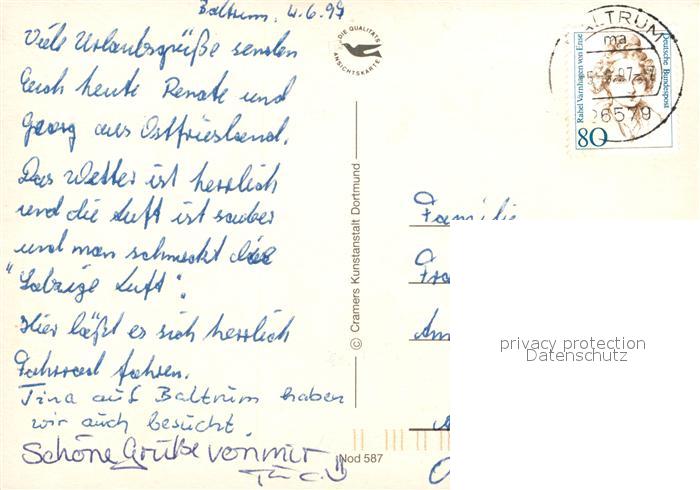 Baltrum, 4.6.97
Viele Urlaubsgrüße senden
Euch heute Renate und
Georg aus Ostfriesland.
Das Wetter ist herrlich
und die Luft ist sauber
und man schmeckt die
"Salzige Luft".
Hier läßt es sich herrlich
Fahrrad fahren.
Tina auf Baltrum haben
wir auch besucht.
Schöne Grüße von mir
Tina
DIE QUALITÄTS
ANSICHTSKARTE
© Cramers Kunstanstalt Dortmund
Nod 587
BALTRUM
ma
26579
Rahel Varnhagen von Ense
Deutsche Bundespost
80
Familie
privacy protection
Datenschutz